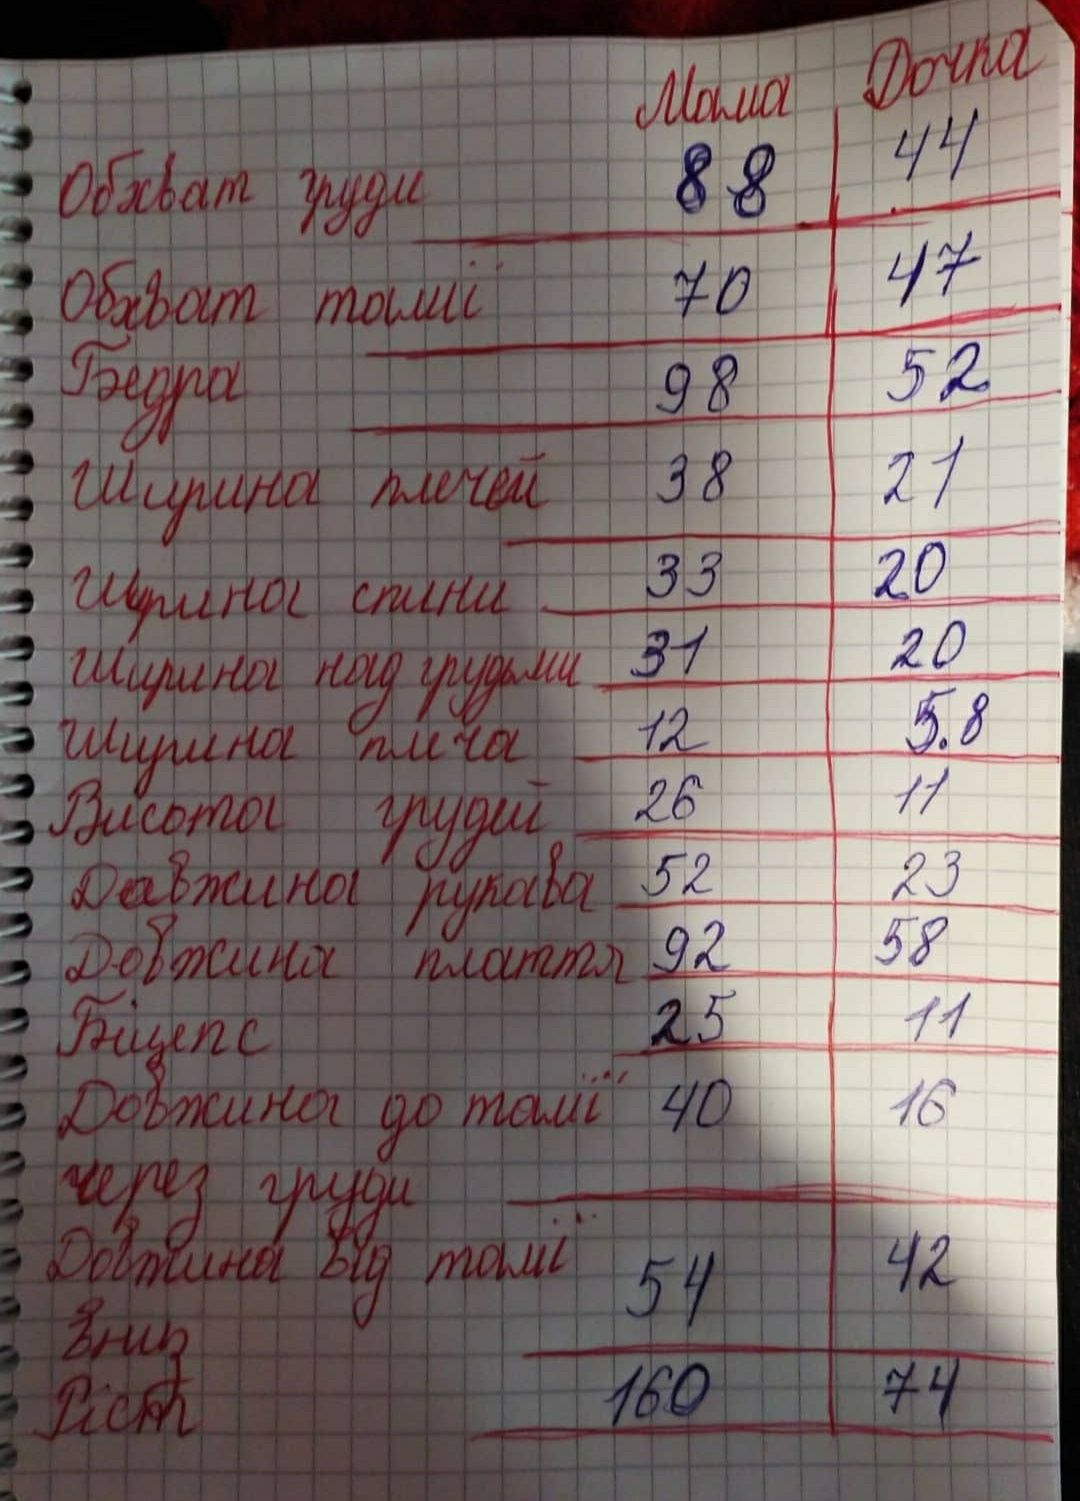 Мама Дочка
Обхват груди 88 44
Обхват талії 70 47
Бедра 98 52
Ширина плечей 38 21
Ширина спини 33 20
Ширина над грудьми 31 20
Ширина плеча 12 5.8
Висота грудей 26 11
Довжина рукава 52 23
Довжина плаття 92 58
Біцепс 25 11
Довжина до талії 40 16
через груди
Довжина від талії 54 42
вниз
Ріст 160 74